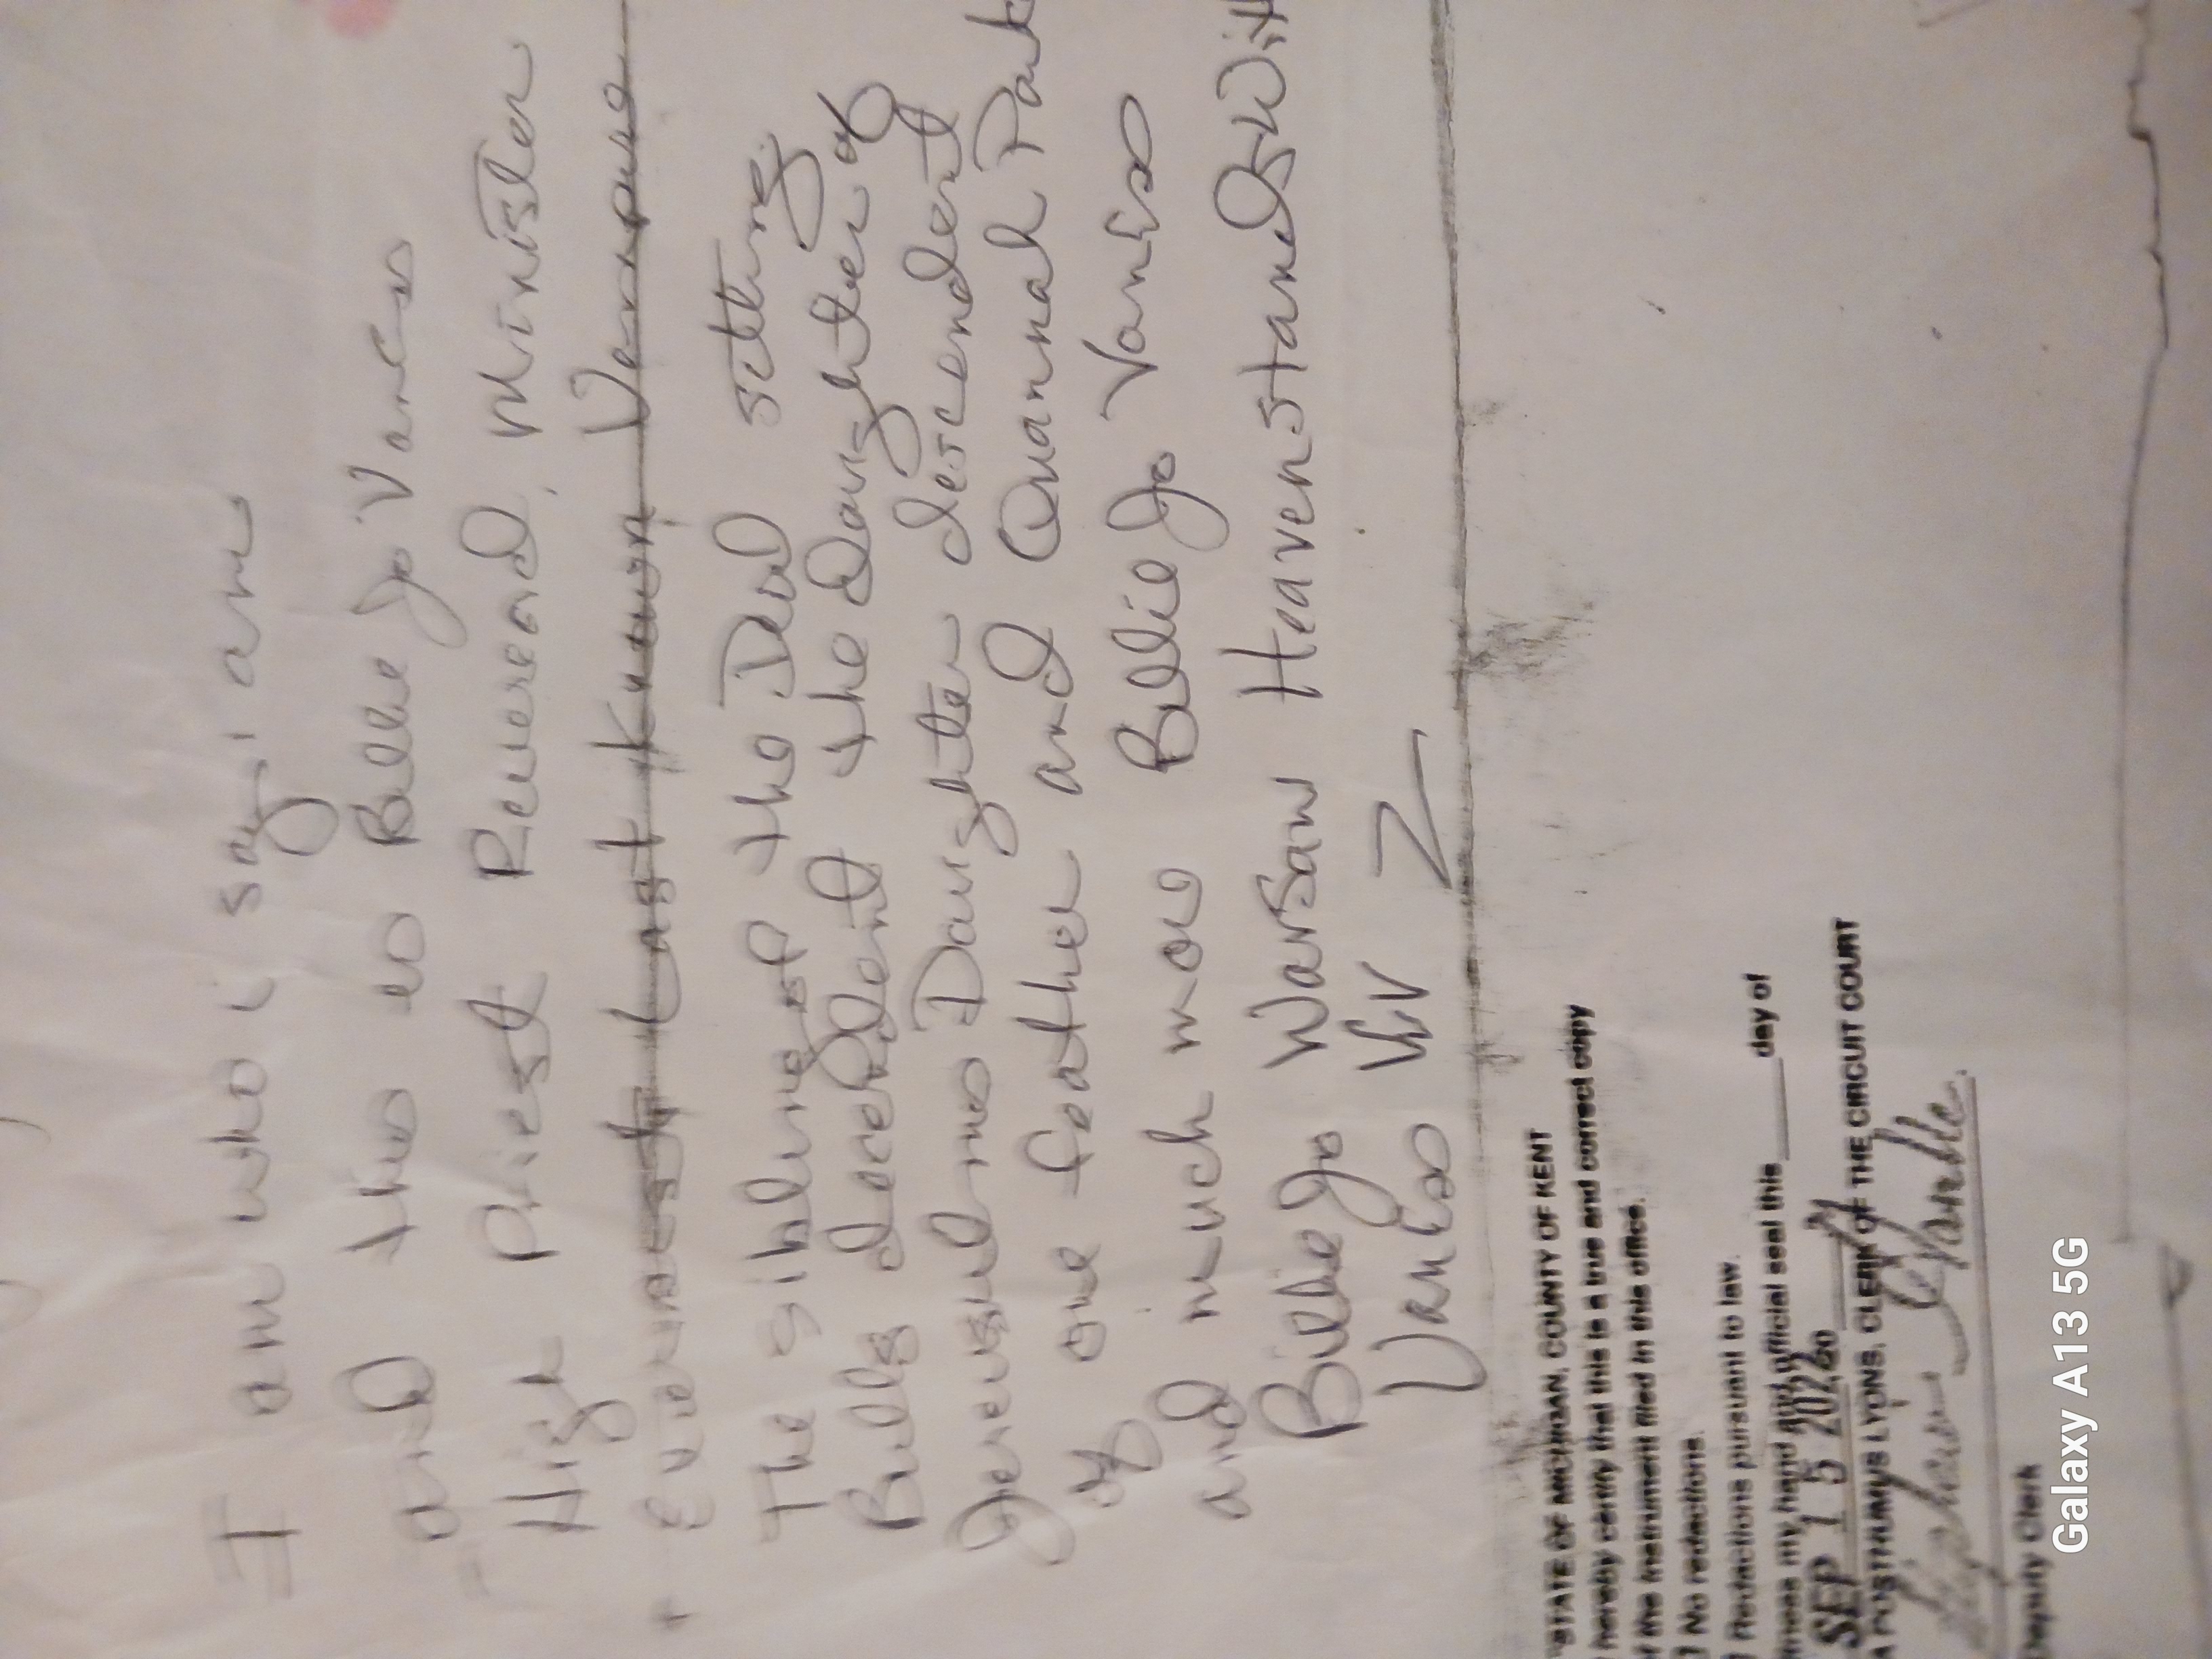 I am who i say i am
and this is Billie Jo Vance
High Priest Revereand, Minister
The sibling of the Deal sitting
Bulls the Daughter of
Daughter descendent
of one feather and Quannah Park
and much more Billie Jo Vaniss
Billie Jo Warsaw Heavenstands With
Vaniss
STATE OF MICHIGAN, COUNTY OF KENT
hereby certify that this is a true and correct copy
f the instrument filed in this office.
] No redactions.
] Redactions pursuant to law.
itness my hand and official seal this ____ day of
SEP 15 2022 20
A POSTHUMUS LYONS, CLERK OF THE CIRCUIT COURT
Deputy Clerk
Galaxy A13 5G